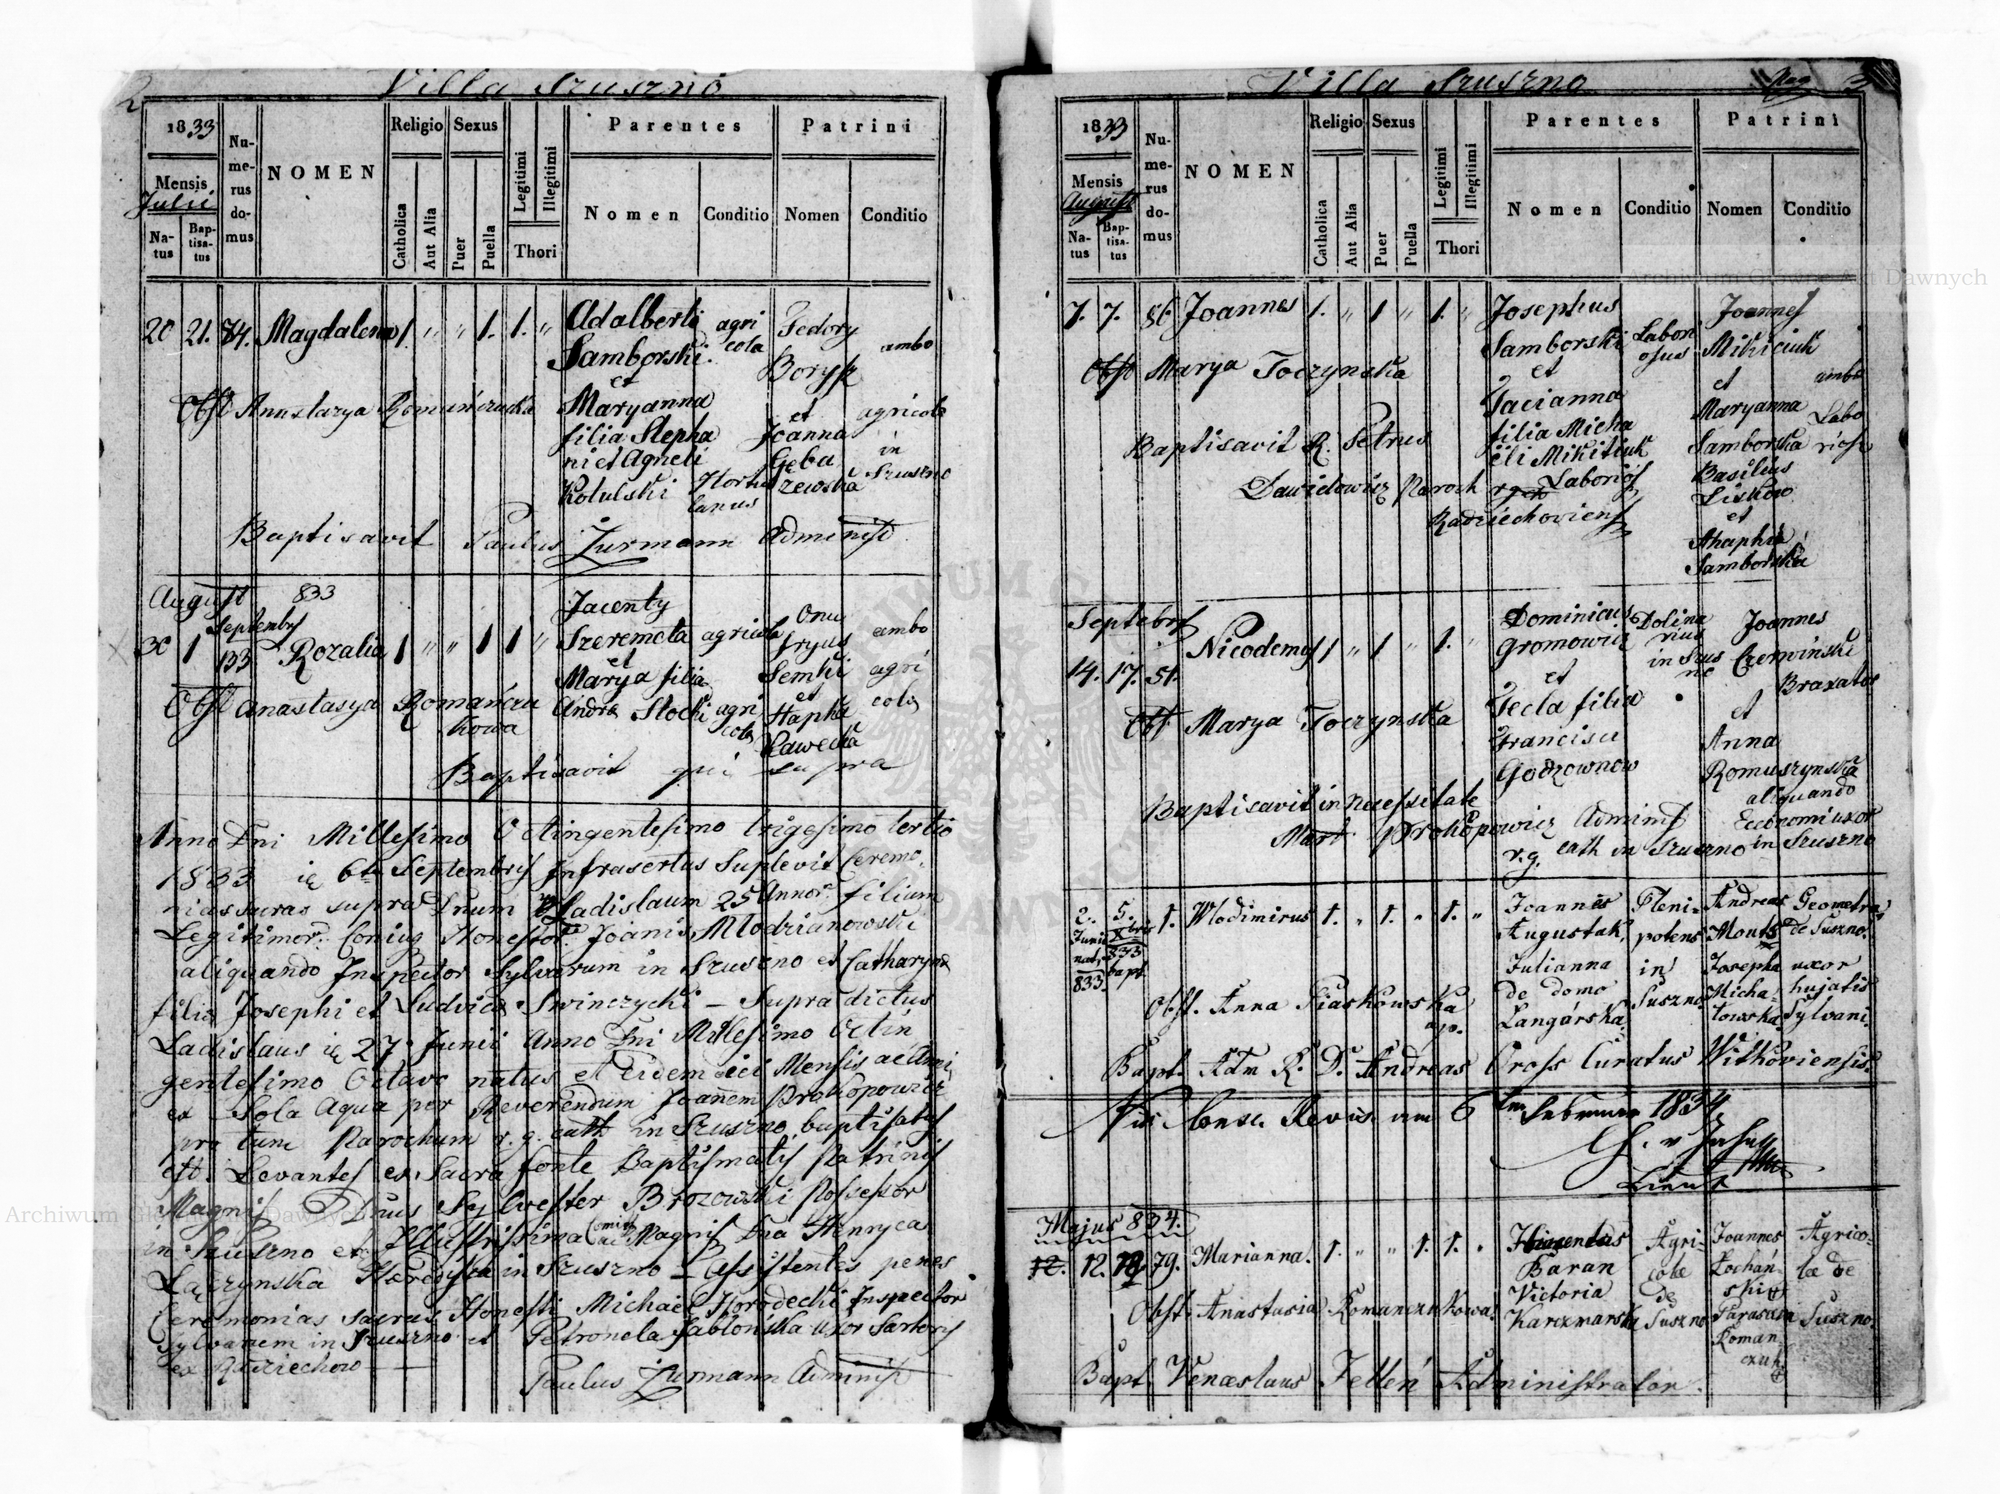 2
Villa Szuszno
1833
Mensis
Julii
Na-
tus
Bap-
tisa-
tus
Nu-
me-
rus
do-
mus
NOMEN
Religio
Catholica
Aut Alia
Sexus
Puer
Puella
Legitimi
Illegitimi
Thori
Parentes
Nomen
Conditio
Patrini
Nomen
Conditio
20 21. 74. Magdalena 1. " " 1. 1. "
Adalberti
Samborski
et
Maryanna
filia Stepha
ni et Agneti
Kotulski
agri
cola
Hortu
lanus
Fedory
Borysz
et
Joanna
Geba
zewska
ambo
agricole
in
Szuszno
Obst Annstazya Romańczucka
Baptisavit Paulus Zurmann Administ
August 833
Septembr
30 1 133 Rozalia 1 " " 1 1 "
Jacenty
Szeremeta agricola
et
Marya filia
Andre Stocki agri
cola
Onu
fryus
Semki
et
Hapka
Sawecka
ambo
agri
cola
Obst Anastasya Romańczu
kowa
Baptisavit qui supra
Anno Dni Millesimo Octingentesimo trigesimo tertio
1833 ie 6ta Septembris Infrasertus Suplevit Ceremo.
nias sacras supra Dnum Ladislaum 25 Annor. filium
Legitimor. Coniug Honestor. Joanis Mlodzianowski
aliquando Inspector Sylvarum in Szuszno et Catharyna
filia Josephi et Ludvica Swinczycki - Supra dictus
Ladislaus ie 27 Junii Anno Dni Millesimo Octin
gentesimo Octavo natus et Eidem dici Mensis ac Anni
ex Sola Aqua per Reverendum Joanem Prokopowicz
pro tunc Parochum r. g. cath in Szuszno baptisatus
est. Levantes ex Sacra fonte Baptismatis Patrinis
Magnif Dnus Sylwester Brozowski Possesor
in Szuszno et Illustrissima Magnif Dna Henryca
Laczynska Haeredissa in Szuszno - Assistentes penes
Ceremonias sacras Honesti Michael Horodecki Inspector
Sylvanem in Szuszno et Petronela Jablonska uxor Sartoris
ex Radziechow
Paulus Zurmann Administ
Villa Szuszno
Aug
3
1833
Mensis
August
Na-
tus
Bap-
tisa-
tus
Nu-
me-
rus
do-
mus
NOMEN
Religio
Catholica
Aut Alia
Sexus
Puer
Puella
Legitimi
Illegitimi
Thori
Parentes
Nomen
Conditio
Patrini
Nomen
Conditio
7. 7. 56. Joannes 1. " 1 " 1. "
Josephus
Samborski
et
Tacianna
filia Micha
eli Mikitiuk
Labori
osus
Laborios
Joannes
Mikiciuk
et
Maryanna
Samborska
Basilius
Liskow
et
Ahaphia
Samborska
ambo
Labo
riosi
Obst Marya Toczynska
Baptisavit R. Petrus
Dawidowicz Paroch r. g.
Radziechoviens
Septebris
14. 17. 51. Nicodemus 1 " 1 " 1. "
Dominicus
Gromowicz
et
Tecla filia
Francisci
Godzownow
Dolina
rius
in Szus
no
Joannes
Czerwinski
Braxator
et
Anna
Romuszynska
aliquando
Economi uxor
in Szuszno
Obst Marya Toczynska
Baptisavit in necessitate
Mart. Prokopowicz Administ
r. g. cath in Szuszno
2.
Junii
nat.
833.
5.
Xbris
833
bapt
1. Wlodimirus 1. " 1. " 1. "
Joannes
Augustak,
Julianna
de domo
Langárska
Pleni-
potens
in
Suszno
Andreas
Mouts
Josepha
Micha-
lowska
Geometra
de Suszno.
uxor
hujatis
Sylvani.
Obst. Anna Piaskowska
ap.
Bapt. Adm R. D. Andreas Oross Curatus Withoviensis.
Vis Conse. Revis. am 6ten Februar 1834
Lieut
Majus 834.
12. 12. 79. Marianna. 1. " " 1. 1. "
Hiacentus
Baran
Victoria
Karczmarska
Agri-
cola
de
Suszno
Joannes
Kochán-
ski
Parasca
Roman
czuk
Agrico-
lae de
Suszno.
Obst. Anastasia Romanczukowa.
Bapt. Venceslaus Zellén Administrator.
Archiwum Główne Akt Dawnych
Archiwum Główne Akt Dawnych